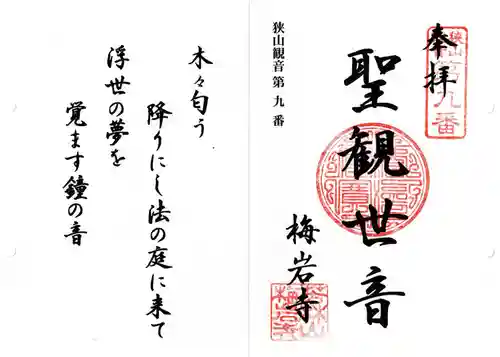 奉拝
狭山第九番
聖観世音
狭山観音第九番
梅岩寺
木々匂う
降りにし法の庭に来て
浮世の夢を
覚ます鐘の音